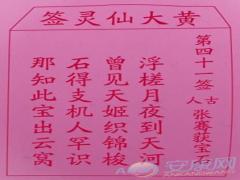 黄大仙灵签
第四十一签
古人 张骞获宝石
浮槎月夜到天河
曾见天姬织锦梭
石得支机人罕识
那知此宝出云窝
安康网